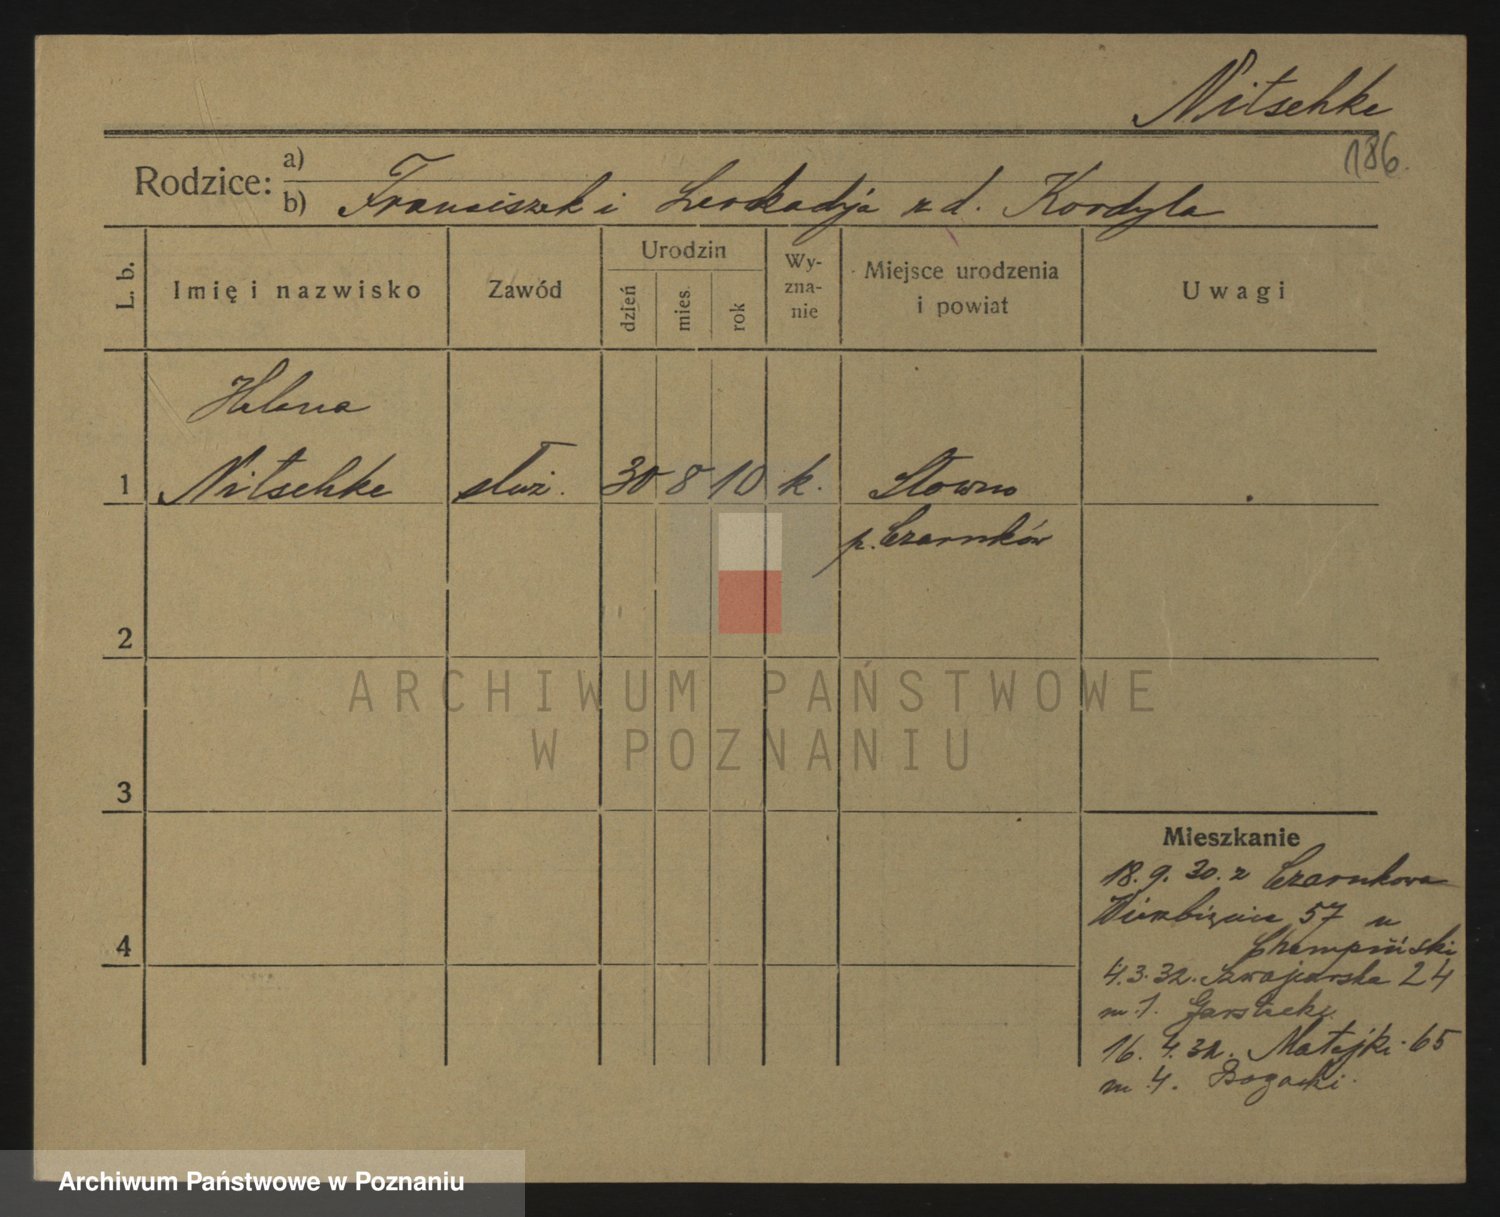 Nitschke
186.
Rodzice: a)
b) Franciszek i Leokadja z d. Kordyla
L. b. Imię i nazwisko Zawód Urodzin dzień mies. rok Wy-zna-nie Miejsce urodzenia i powiat Uwagi
Helena
1 Nitschke służ. 30 8 10 k. Słowno
p. Czarnków
2
ARCHIWUM PAŃSTWOWE
W POZNANIU
3
Mieszkanie
18. 9. 30. z Czarnkowa
Wierzbięcice 57 u
4
4. 3. 32. Szwajcarska 24
m 1.
16. 4. 32. Matejki 65
m 4. Bogacki.
Archiwum Państwowe w Poznaniu